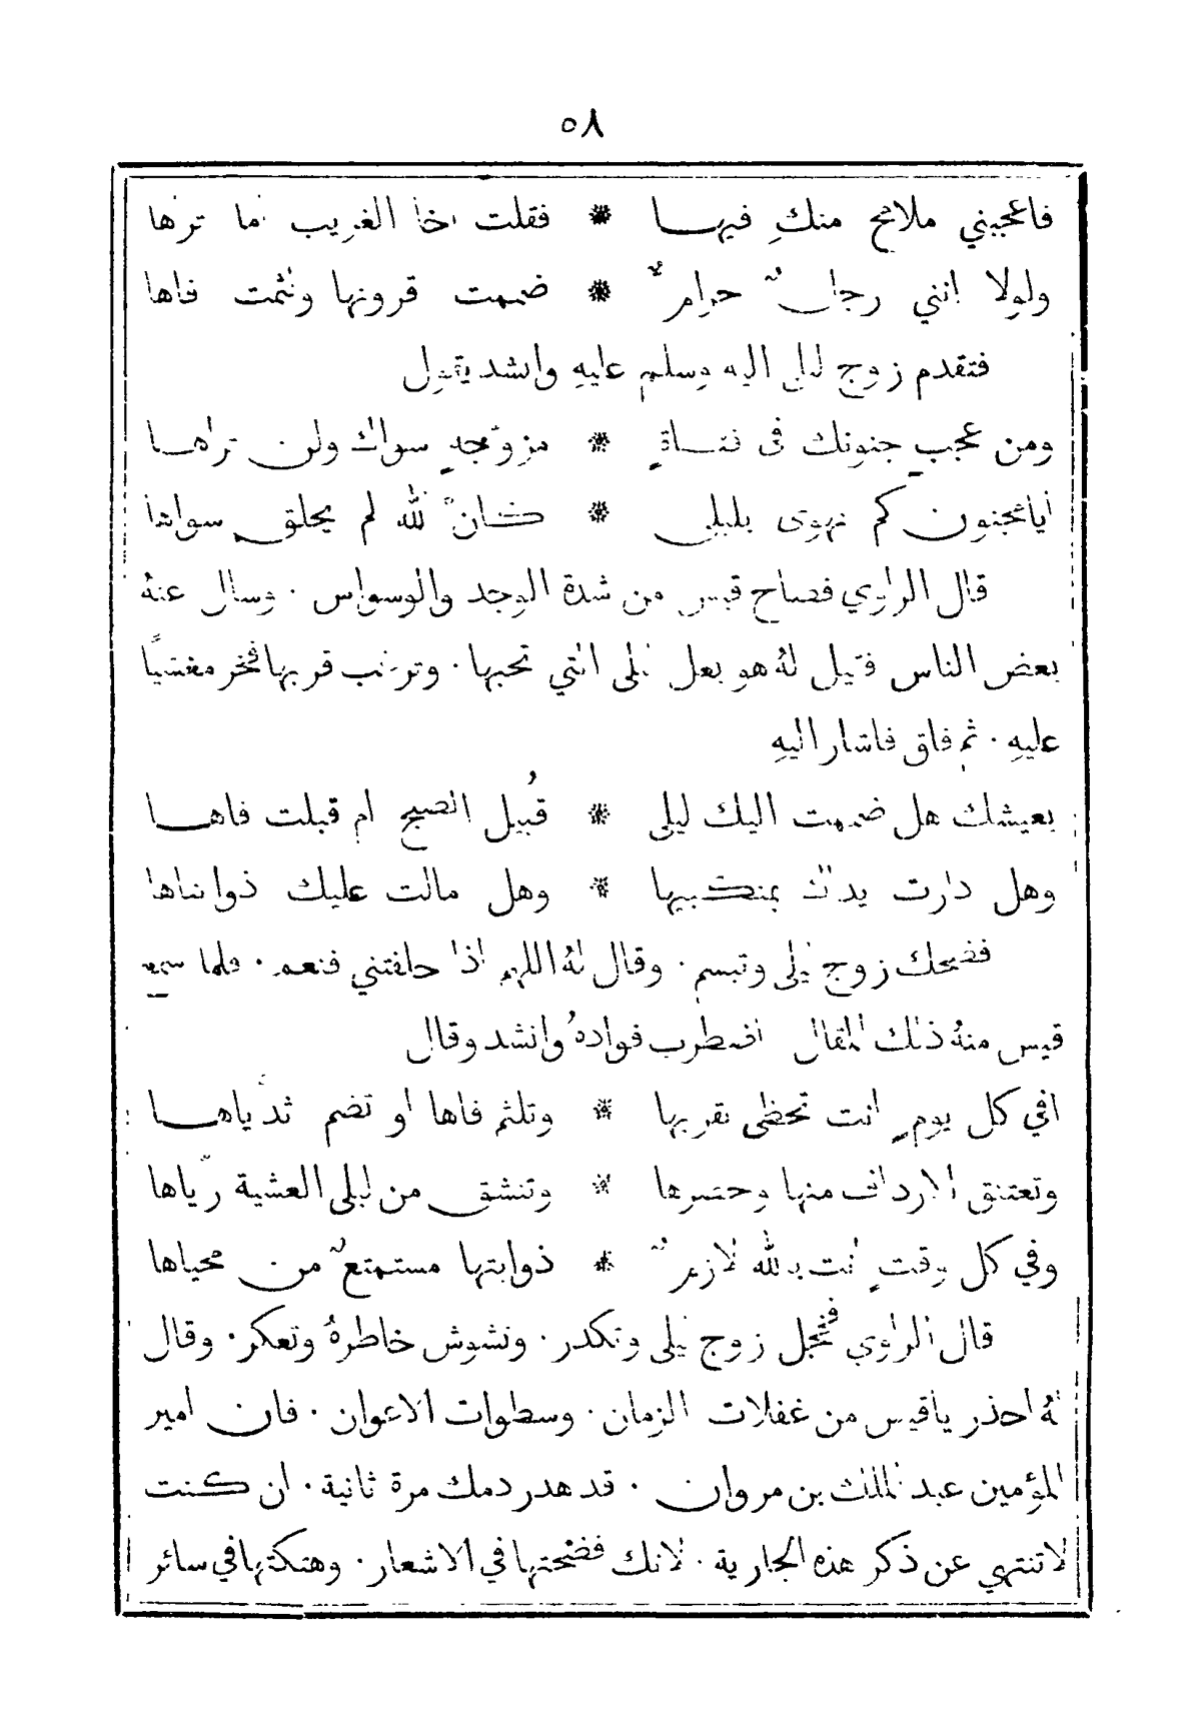 ٥٨
فاعجبني ملامح منكِ فيهـا * فقلت اخا الغريب اما تراها
ولولا انني رجلٌ حرامٌ * ضممت قرونها ولثمت فاها
فتقدم زوج ليلى اليه وسلم عليهِ وانشد يقول
ومن عجبٍ جنونك في فتـاةٍ * مزوّجةٍ سواك ولن تراهـا
ايامجنون كم تهوى بليلى * كـانّ الله لم يخلق سواها
قال الراوي فصاح قيس من شدة الوجد والوسواس . وسال عنهُ
بعض الناس فقيل لهُ هو بعل ليلى التي تحبها . وترغب قربها فخر مغشيًا
عليهِ . ثم فاق فاشار اليهِ
بعيشك هل ضممت اليك ليلى * قُبيل الصبح ام قبلت فاهـا
وهل دارت يداك بمنكبيها * وهل مالت عليك ذوابتاها
فضحك زوج ليلى وتبسم . وقال لهُ اللهم اذا حلفتني فنعم . فلما سمع
قيس منهُ ذلك المقال اضطرب فوادهُ وانشد وقال
افي كل يومٍ انت تحظى بقربها * وتلثم فاها او تضم ثدّياهـا
وتعتنق الارداف منها وخصرها * وتنشق من ليلى العشية ريّاها
وفي كل وقتٍ انت بالله لازمٌ * ذوابتها مستمتعٌ من محياها
قال الراوي فخجل زوج ليلى وتكدر . وتشوش خاطرهُ وتعكر . وقال
لهُ احذر ياقيس من غفلات الزمان . وسطوات الاعوان . فان امير
المؤمنين عبد الملك بن مروان . قد هدر دمك مرة ثانية . ان كنت
لاتنتهي عن ذكر هذه الجارية . لانك فضحتها في الاشعار . وهتكتها في سائر